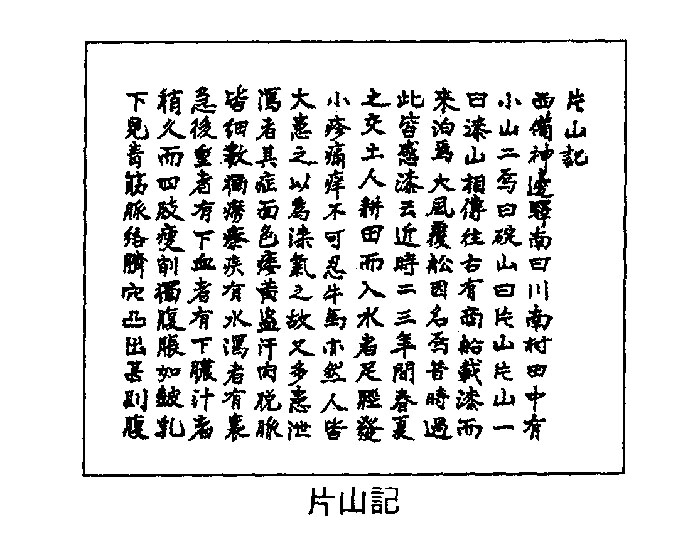 片山記
西備神邊驛南曰川南村田中有
小山二焉曰碇山曰片山片山一
曰漆山相傳往古有商船載漆而
來泊焉大風覆舩因名焉昔時過
此皆感漆云近時二三年間春夏
之交土人耕田而入水者足脛發
小疹痛痒不可忍牛馬亦然人皆
大患之以為漆氣之故又多患泄
瀉者其症面色痿黄盗汗肉脱脈
皆細數獨癆瘵疾有水瀉者有裏
急後重者有下血者有下膿汁者
稍久而四肢瘦削獨腹脹如皷乳
下見青筋脈絡臍穴凸出甚則腹
片山記